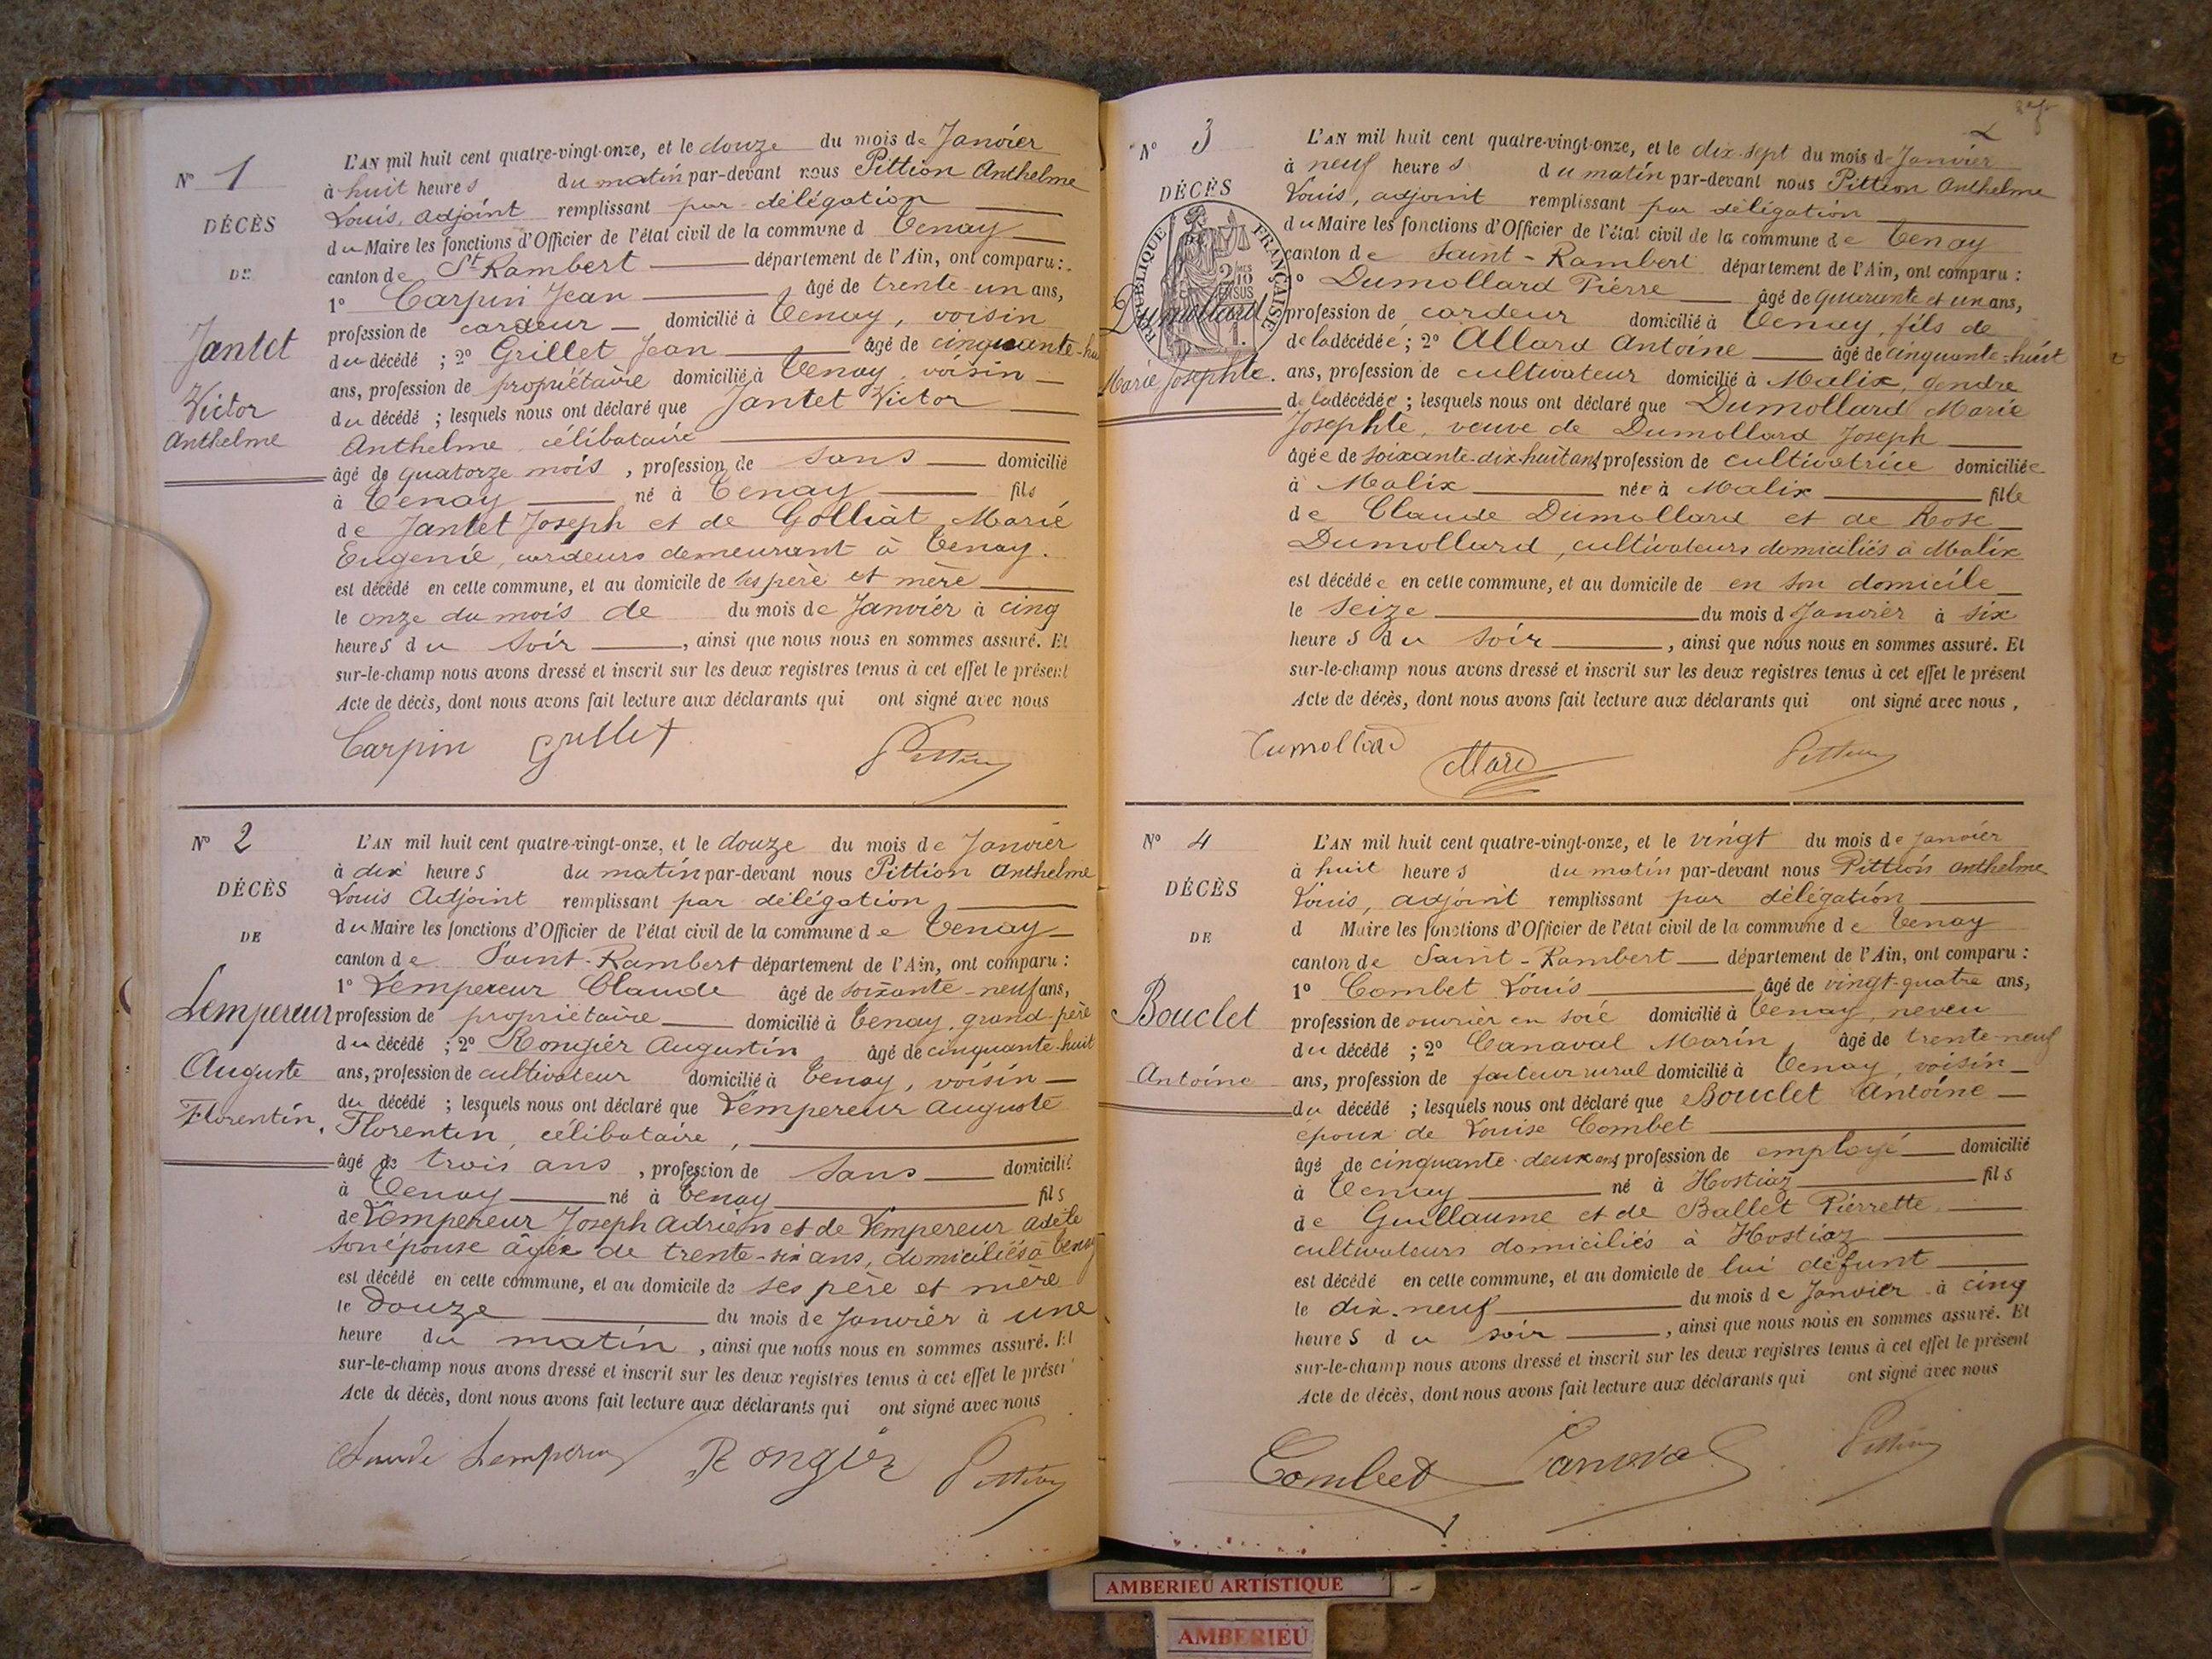 N° 1
DÉCÈS
DE
Jantet
Victor
Anthelme
L'AN mil huit cent quatre-vingt-onze, et le douze du mois de Janvier
à huit heures du matin par-devant nous Pittion Anthelme
Louis, adjoint remplissant par délégation
du Maire les fonctions d'Officier de l'état civil de la commune d Tenay
canton de St Rambert département de l'Ain, ont comparu :
1° Carpin Jean âgé de trente-un ans,
profession de cardeur domicilié à Tenay, voisin
du décédé ; 2° Grillet Jean âgé de cinquante-hu
ans, profession de propriétaire domicilié à Tenay, voisin
du décédé ; lesquels nous ont déclaré que Jantet Victor
Anthelme célibataire
âgé de quatorze mois, profession de sans domicilié
à Tenay né à Tenay fils
de Jantet Joseph et de Golliat Marie
Eugenie, cardeurs demeurant à Tenay.
est décédé en cette commune, et au domicile de ses père et mère
le onze du mois de du mois de Janvier à cinq
heures du soir, ainsi que nous nous en sommes assuré. Et
sur-le-champ nous avons dressé et inscrit sur les deux registres tenus à cet effet le présent
Acte de décès, dont nous avons fait lecture aux déclarants qui ont signé avec nous
Carpin Grillet Pittion
N° 2
DÉCÈS
DE
Lempereur
Auguste
Florentin.
L'AN mil huit cent quatre-vingt-onze, et le douze du mois de Janvier
à dix heures du matin par-devant nous Pittion Anthelme
Louis Adjoint remplissant par délégation
du Maire les fonctions d'Officier de l'état civil de la commune de Tenay
canton de Saint-Rambert département de l'Ain, ont comparu :
1° Lempereur Claude âgé de soixante-neuf ans,
profession de propriétaire domicilié à Tenay, grand-père
du décédé ; 2° Rongier Augustin âgé de cinquante-huit
ans, profession de cultivateur domicilié à Tenay, voisin
du décédé ; lesquels nous ont déclaré que Lempereur Auguste
Florentin, célibataire,
âgé de trois ans, profession de sans domicilié
à Tenay né à Tenay fils
de Lempereur Joseph Adrien et de Lempereur adèle
son épouse âgée de trente-six ans, domiciliés à Tenay
est décédé en cette commune, et au domicile de ses père et mère
le douze du mois de Janvier à une
heure du matin, ainsi que nous nous en sommes assuré. Et
sur-le-champ nous avons dressé et inscrit sur les deux registres tenus à cet effet le présen
Acte de décès, dont nous avons fait lecture aux déclarants qui ont signé avec nous
Claude Lempereur Rongier Pittion
2
N° 3
DÉCÈS
RÉPUBLIQUE FRANÇAISE
2/10 EN SUS
Dumollard
Marie Josephte.
L'AN mil huit cent quatre-vingt-onze, et le dix-sept du mois d Janvier
à neuf heures du matin par-devant nous Pittion Anthelme
Louis, adjoint remplissant par délégation
du Maire les fonctions d'Officier de l'état civil de la commune de Tenay
canton de Saint-Rambert département de l'Ain, ont comparu :
1° Dumollard Pierre âgé de quarante et un ans,
profession de cardeur domicilié à Tenay, fils de
de la décédée ; 2° Allard Antoine âgé de cinquante-huit
ans, profession de cultivateur domicilié à Malix, gendre
de la décédée ; lesquels nous ont déclaré que Dumollard Marie
Josephte, veuve de Dumollard Joseph
âgée de soixante-dix-huit ans profession de cultivatrice domiciliée
à Malix née à Malix fille
de Claude Dumollard et de Rose
Dumollard, cultivateurs domiciliés à Malix
est décédée en cette commune, et au domicile de en son domicile
le seize du mois d Janvier à six
heures du soir, ainsi que nous nous en sommes assuré. Et
sur-le-champ nous avons dressé et inscrit sur les deux registres tenus à cet effet le présent
Acte de décès, dont nous avons fait lecture aux déclarants qui ont signé avec nous,
Dumollard Allard Pittion
N° 4
DÉCÈS
DE
Bouclet
Antoine
L'AN mil huit cent quatre-vingt-onze, et le vingt du mois de janvier
à huit heures du matin par-devant nous Pittion Anthelme
Louis, adjoint remplissant par délégation
d Maire les fonctions d'Officier de l'état civil de la commune de Tenay
canton de Saint-Rambert département de l'Ain, ont comparu :
1° Combet Louis âgé de vingt-quatre ans,
profession de ouvrier en soie domicilié à Tenay, neveu
du décédé ; 2° Canaval Marin, âgé de trente-neuf
ans, profession de facteur rural domicilié à Tenay, voisin
du décédé ; lesquels nous ont déclaré que Bouclet Antoine
époux de Louise Combet
âgé de cinquante-deux ans profession de employé domicilié
à Tenay né à Hostiaz fils
de Guillaume et de Ballet Pierrette,
cultivateurs domiciliés à Hostiaz
est décédé en cette commune, et au domicile de lui défunt
le dix-neuf du mois de Janvier à cinq
heures du soir, ainsi que nous nous en sommes assuré. Et
sur-le-champ nous avons dressé et inscrit sur les deux registres tenus à cet effet le présent
Acte de décès, dont nous avons fait lecture aux déclarants qui ont signé avec nous
Combet Canaval Pittion
AMBERIEU ARTISTIQUE
AMBERIEU